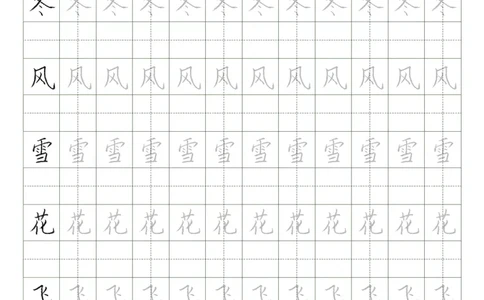 冬冬冬冬冬冬冬冬冬冬冬冬
风风风风风风风风风风风风
雪雪雪雪雪雪雪雪雪雪雪雪
花花花花花花花花花花花花
飞飞飞飞飞飞飞飞飞飞飞飞